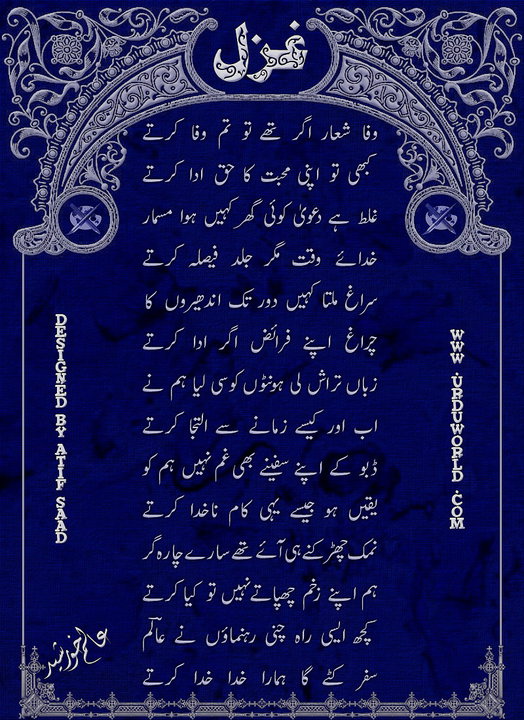 غزل
وفا شعار اگر تھے تو تم وفا کرتے
کبھی تو اپنی محبت کا حق ادا کرتے
غلط ہے دعویٰ کوئی گھر کہیں ہوا مسمار
خدائے وقت مگر جلد فیصلہ کرتے
سراغ ملتا کہیں دور تک اندھیروں کا
چراغ اپنے فرائض اگر ادا کرتے
زباں تراش لی ہونٹوں کو سی لیا ہم نے
اب اور کیسے زمانے سے التجا کرتے
ڈبو کے اپنے سفینے بھی غم نہیں ہم کو
یقیں ہو جیسے یہی کام ناخدا کرتے
نمک چھڑکنے ہی آئے تھے سارے چارہ گر
ہم اپنے زخم چھپاتے نہیں تو کیا کرتے
کچھ ایسی راہ چنی رہنماؤں نے عالؔم
سفر کٹے گا ہمارا خدا خدا کرتے
عالم خورشید
DESIGNED BY ATIF SAAD
WWW.URDUWORLD.COM